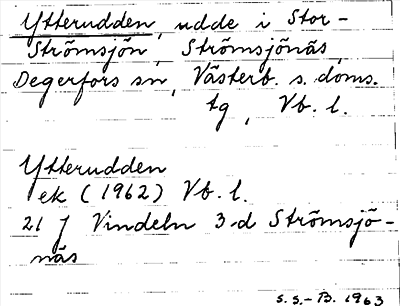 Ytterudden, udde i Stor-
Strömsjön, Strömsjönäs,
Degerfors sn, Västerb. s. doms.
tg, Vb. l.
Ytterudden
ek (1962) Vb. l.
21 J Vindeln 3-d Strömsjö-
näs
S.S.-B. 1963